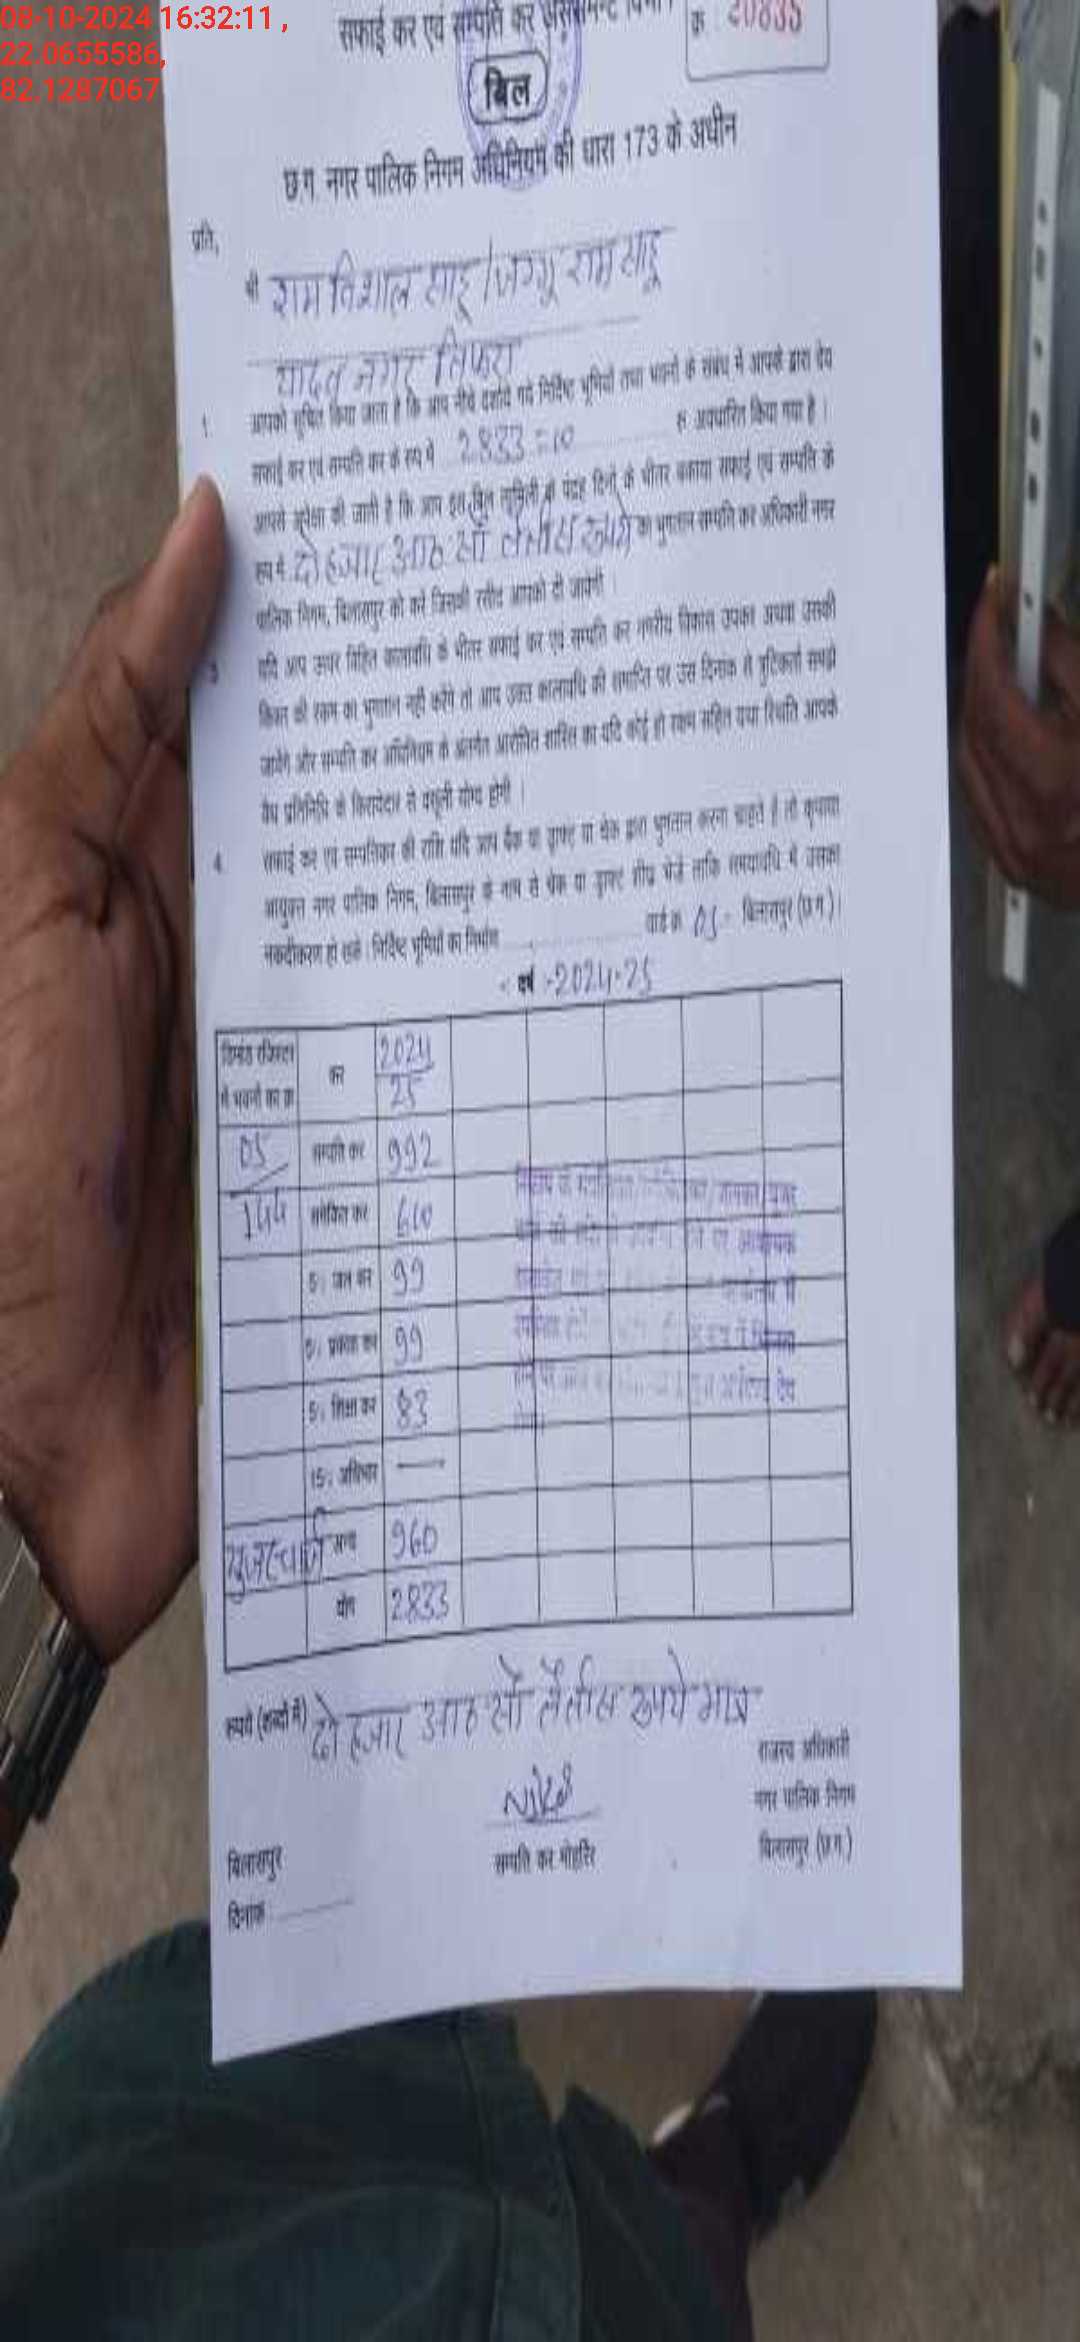 08-10-2024 16:32:11 ,
22.0655586,
82.1287067
सफाई कर एवं सम्पत्ति कर
क्र 20835
बिल
छ.ग. नगर पालिक निगम अधिनियम की धारा 173 के अधीन
प्रति,
श्री राम विशाल साहू / जग्गू राम साहू
यादव नगर तिफरा
1. आपको सूचित किया जाता है कि आप नीचे दर्शाये गये निर्दिष्ट भूमियों तथा भवनों के संबंध में आपके द्वारा देय
सफाई कर एवं सम्पत्ति कर के रूप में 2833=10 रु. अवधारित किया गया है ।
आपसे अपेक्षा की जाती है कि आप इस बिल तामिली के पंद्रह दिनों के भीतर बकाया सफाई एवं सम्पत्ति के
रूप में दो हजार आठ सौ तैतीस रूपये का भुगतान सम्पत्ति कर अधिकारी नगर
पालिक निगम, बिलासपुर को करें जिसकी रसीद आपको दी जायेगी ।
3 यदि आप ऊपर विहित कालावधि के भीतर सफाई कर एवं सम्पत्ति कर नगरीय विकास उपकर अथवा उसकी
किस्त की रकम का भुगतान नहीं करेंगे तो आप उक्त कालावधि की समाप्ति पर उस दिनांक से त्रुटिकर्ता समझे
जायेंगे और सम्पत्ति कर अधिनियम के अंतर्गत आरोपित शास्ति का यदि कोई हो रकम सहित यथा स्थिति आपके
वैध प्रतिनिधि के किरायेदार से वसूली योग्य होगी ।
4. सफाई कर एवं सम्पत्तिकर की राशि यदि आप बैंक या ड्राफ्ट या चेक द्वारा भुगतान करना चाहते हैं तो कृपया
आयुक्त नगर पालिक निगम, बिलासपुर के नाम से चेक या ड्राफ्ट शीघ्र भेजें ताकि समयावधि में उसका
नकदीकरण हो सके । निर्दिष्ट भूमियों का निर्माण वार्ड क्र. 05 बिलासपुर (छ.ग.)।
वर्ष :-2024-25
डिमांड रजिस्टर में भवनों का क्र. कर 2024/25
05 सम्पत्ति कर 992
144 समेकित कर 600
5% जल कर 99
5% प्रकाश कर 99
5% शिक्षा कर 83
15% अधिभार —
युजरचार्ज अन्य 960
योग 2833
रूपये (शब्दों में) दो हजार आठ सौ तैतीस रूपये मात्र
राजस्व अधिकारी
नगर पालिक निगम
बिलासपुर (छ.ग.)
सम्पत्ति कर मोहर्रिर
बिलासपुर
दिनांक